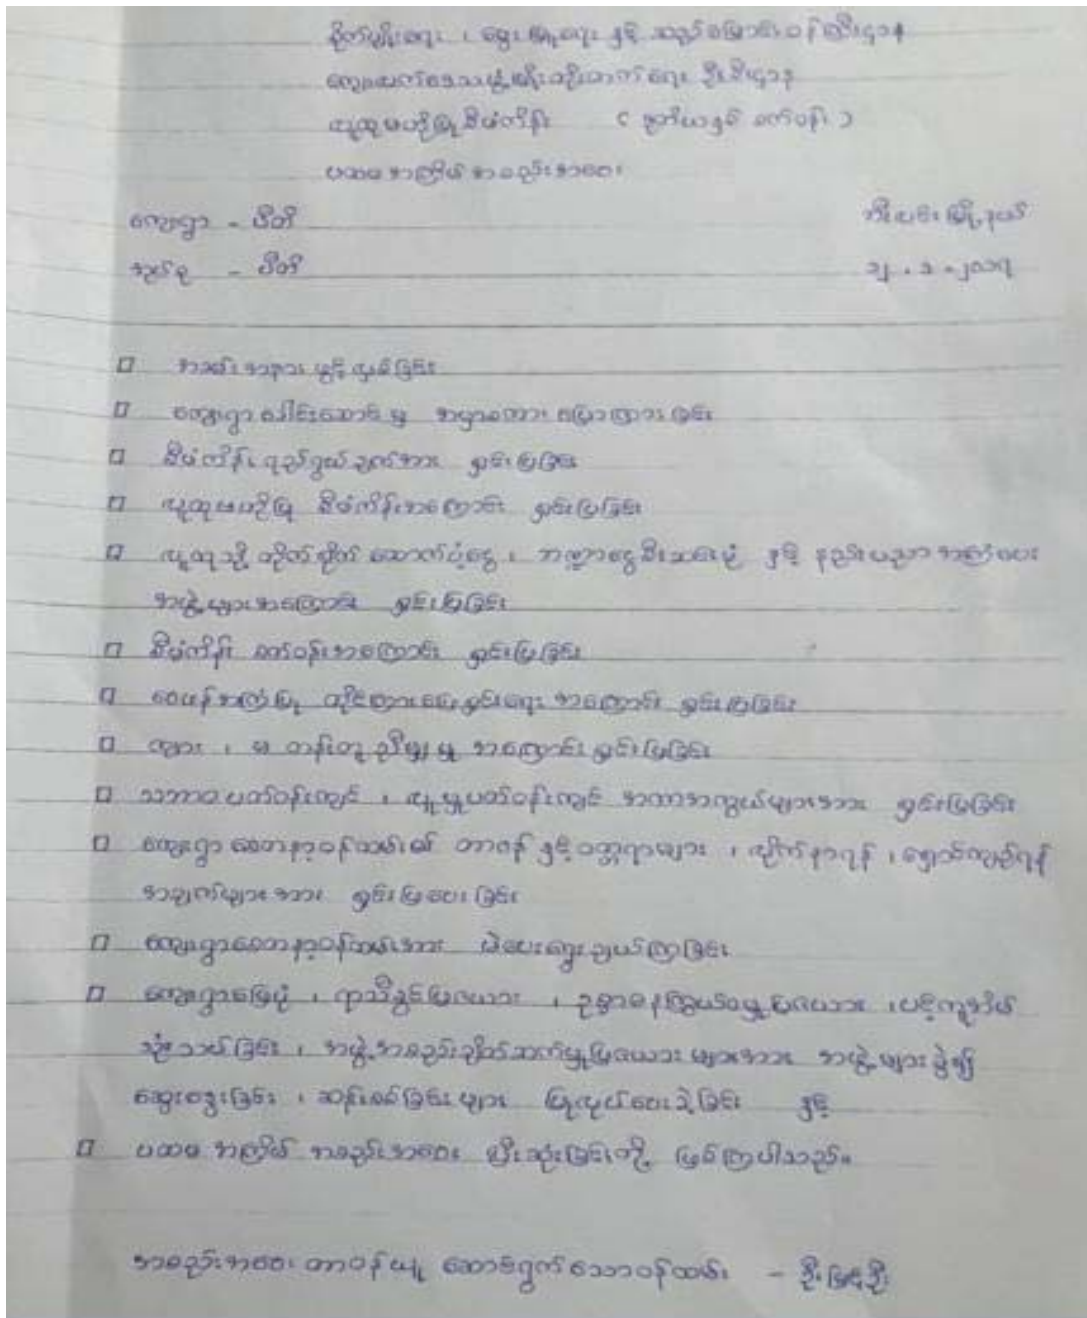 စိုက်ပျိုးရေး ၊ မွေးမြူရေး နှင့် ဆည်မြောင်းဝန်ကြီးဌာန
ကျေးလက်ဒေသဖွံ့ဖြိုးတိုးတက်ရေး ဦးစီးဌာန
လူထုဗဟိုပြုစီမံကိန်း ( ဒုတိယနှစ် စက်ဝန်း )
ပထမ အကြိမ် အစည်းအဝေး
ကျေးရွာ - ဗီတီ
ဘီးလင်းမြို့နယ်
အုပ်စု - ဗီတီ
၁၂ . ၁ . ၂၀၁၇
□ အခမ်းအနား ဖွင့်လှစ်ခြင်း
□ ကျေးရွာ ခေါင်းဆောင်မှ အမှာစကား ပြောကြားခြင်း
□ စီမံကိန်း ရည်ရွယ်ချက်အား ရှင်းပြခြင်း
□ လူထုဗဟိုပြု စီမံကိန်းအကြောင်း ရှင်းပြခြင်း
□ လူထုသို့ တိုက်ရိုက် ထောက်ပံ့ငွေ ၊ ဘဏ္ဍာငွေစီးဆင်းပုံ နှင့် နည်းပညာ အကြံပေး
အဖွဲ့များအကြောင်း ရှင်းပြခြင်း
□ စီမံကိန်း စက်ဝန်းအကြောင်း ရှင်းပြခြင်း
□ ဝေဖန်အကြံပြု တိုင်ကြားဖြေရှင်းရေး အကြောင်း ရှင်းပြခြင်း
□ ကျား ၊ မ တန်းတူ ညီမျှမှု အကြောင်း ရှင်းပြခြင်း
□ သဘာဝပတ်ဝန်းကျင် ၊ လူမှုပတ်ဝန်းကျင် အကာအကွယ်များအား ရှင်းပြခြင်း
□ ကျေးရွာ စေတနာ့ဝန်ထမ်း၏ တာဝန် နှင့် ဝတ္တရားများ ၊ လိုက်နာရန် ၊ ရှောင်ကျဉ်ရန်
အချက်များအား ရှင်းပြပေးခြင်း
□ ကျေးရွာစေတနာ့ဝန်ထမ်းအား မဲပေးရွေးချယ်ကြခြင်း
□ ကျေးရွာမြေပုံ ၊ ရာသီခွင်ပြဇယား ၊ ဥစ္စာဓနကြွယ်ဝမှုပြဇယား ၊ ပင့်ကူအိမ်
သုံးသပ်ခြင်း ၊ အဖွဲ့အစည်းချိတ်ဆက်မှုပြဇယား များအား အဖွဲ့များ ခွဲ၍
ဆွေးနွေးခြင်း ၊ ဆန်းစစ်ခြင်းများ ပြုလုပ်ပေးခဲ့ခြင်း နှင့်
□ ပထမ အကြိမ် အစည်းအဝေး ပြီးဆုံးခြင်းတို့ ဖြစ်ကြပါသည်။
အစည်းအဝေး တာဝန်ယူ ဆောင်ရွက်သောဝန်ထမ်း - ဦးမြင့်ဦး